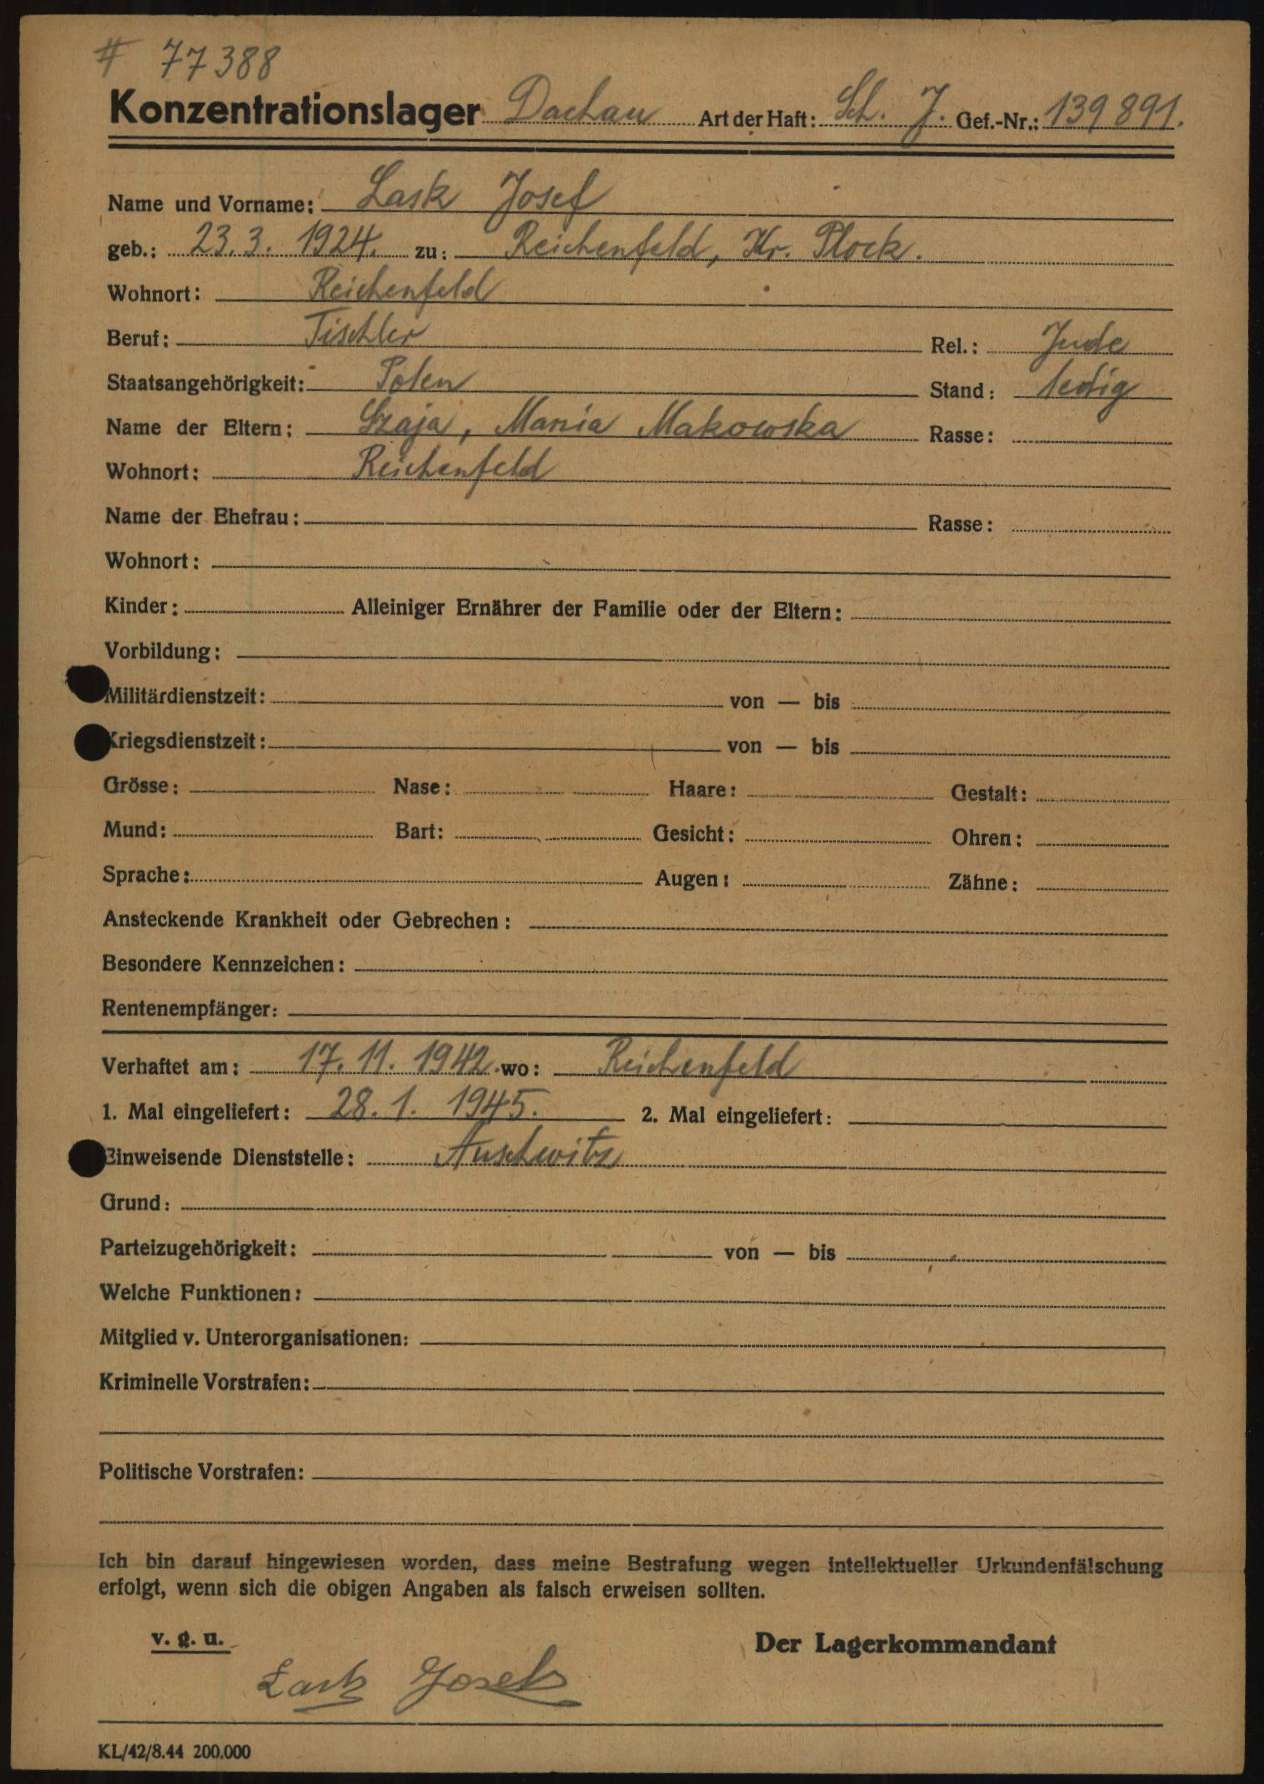 # 77388
Konzentrationslager Dachau Art der Haft: Sch. J. Gef.-Nr.: 139891.
Name und Vorname: Lask Josef
geb.: 23.3. 1924. zu: Reichenfeld, Kr. Plock.
Wohnort: Reichenfeld
Beruf: Tischler Rel.: Jude
Staatsangehörigkeit: Polen Stand: ledig
Name der Eltern: Szaja, Mania Makowska Rasse:
Wohnort: Reichenfeld
Name der Ehefrau: Rasse:
Wohnort:
Kinder: Alleiniger Ernährer der Familie oder der Eltern:
Vorbildung:
Militärdienstzeit: von — bis
Kriegsdienstzeit: von — bis
Grösse: Nase: Haare: Gestalt:
Mund: Bart: Gesicht: Ohren:
Sprache: Augen: Zähne:
Ansteckende Krankheit oder Gebrechen:
Besondere Kennzeichen:
Rentenempfänger:
Verhaftet am: 17. 11. 1942. wo: Reichenfeld
1. Mal eingeliefert: 28. 1. 1945. 2. Mal eingeliefert:
Einweisende Dienststelle: Auschwitz
Grund:
Parteizugehörigkeit: von — bis
Welche Funktionen:
Mitglied v. Unterorganisationen:
Kriminelle Vorstrafen:
Politische Vorstrafen:
Ich bin darauf hingewiesen worden, dass meine Bestrafung wegen intellektueller Urkundenfälschung
erfolgt, wenn sich die obigen Angaben als falsch erweisen sollten.
v. g. u. Der Lagerkommandant
Lask Josek
KL/42/8.44 200.000